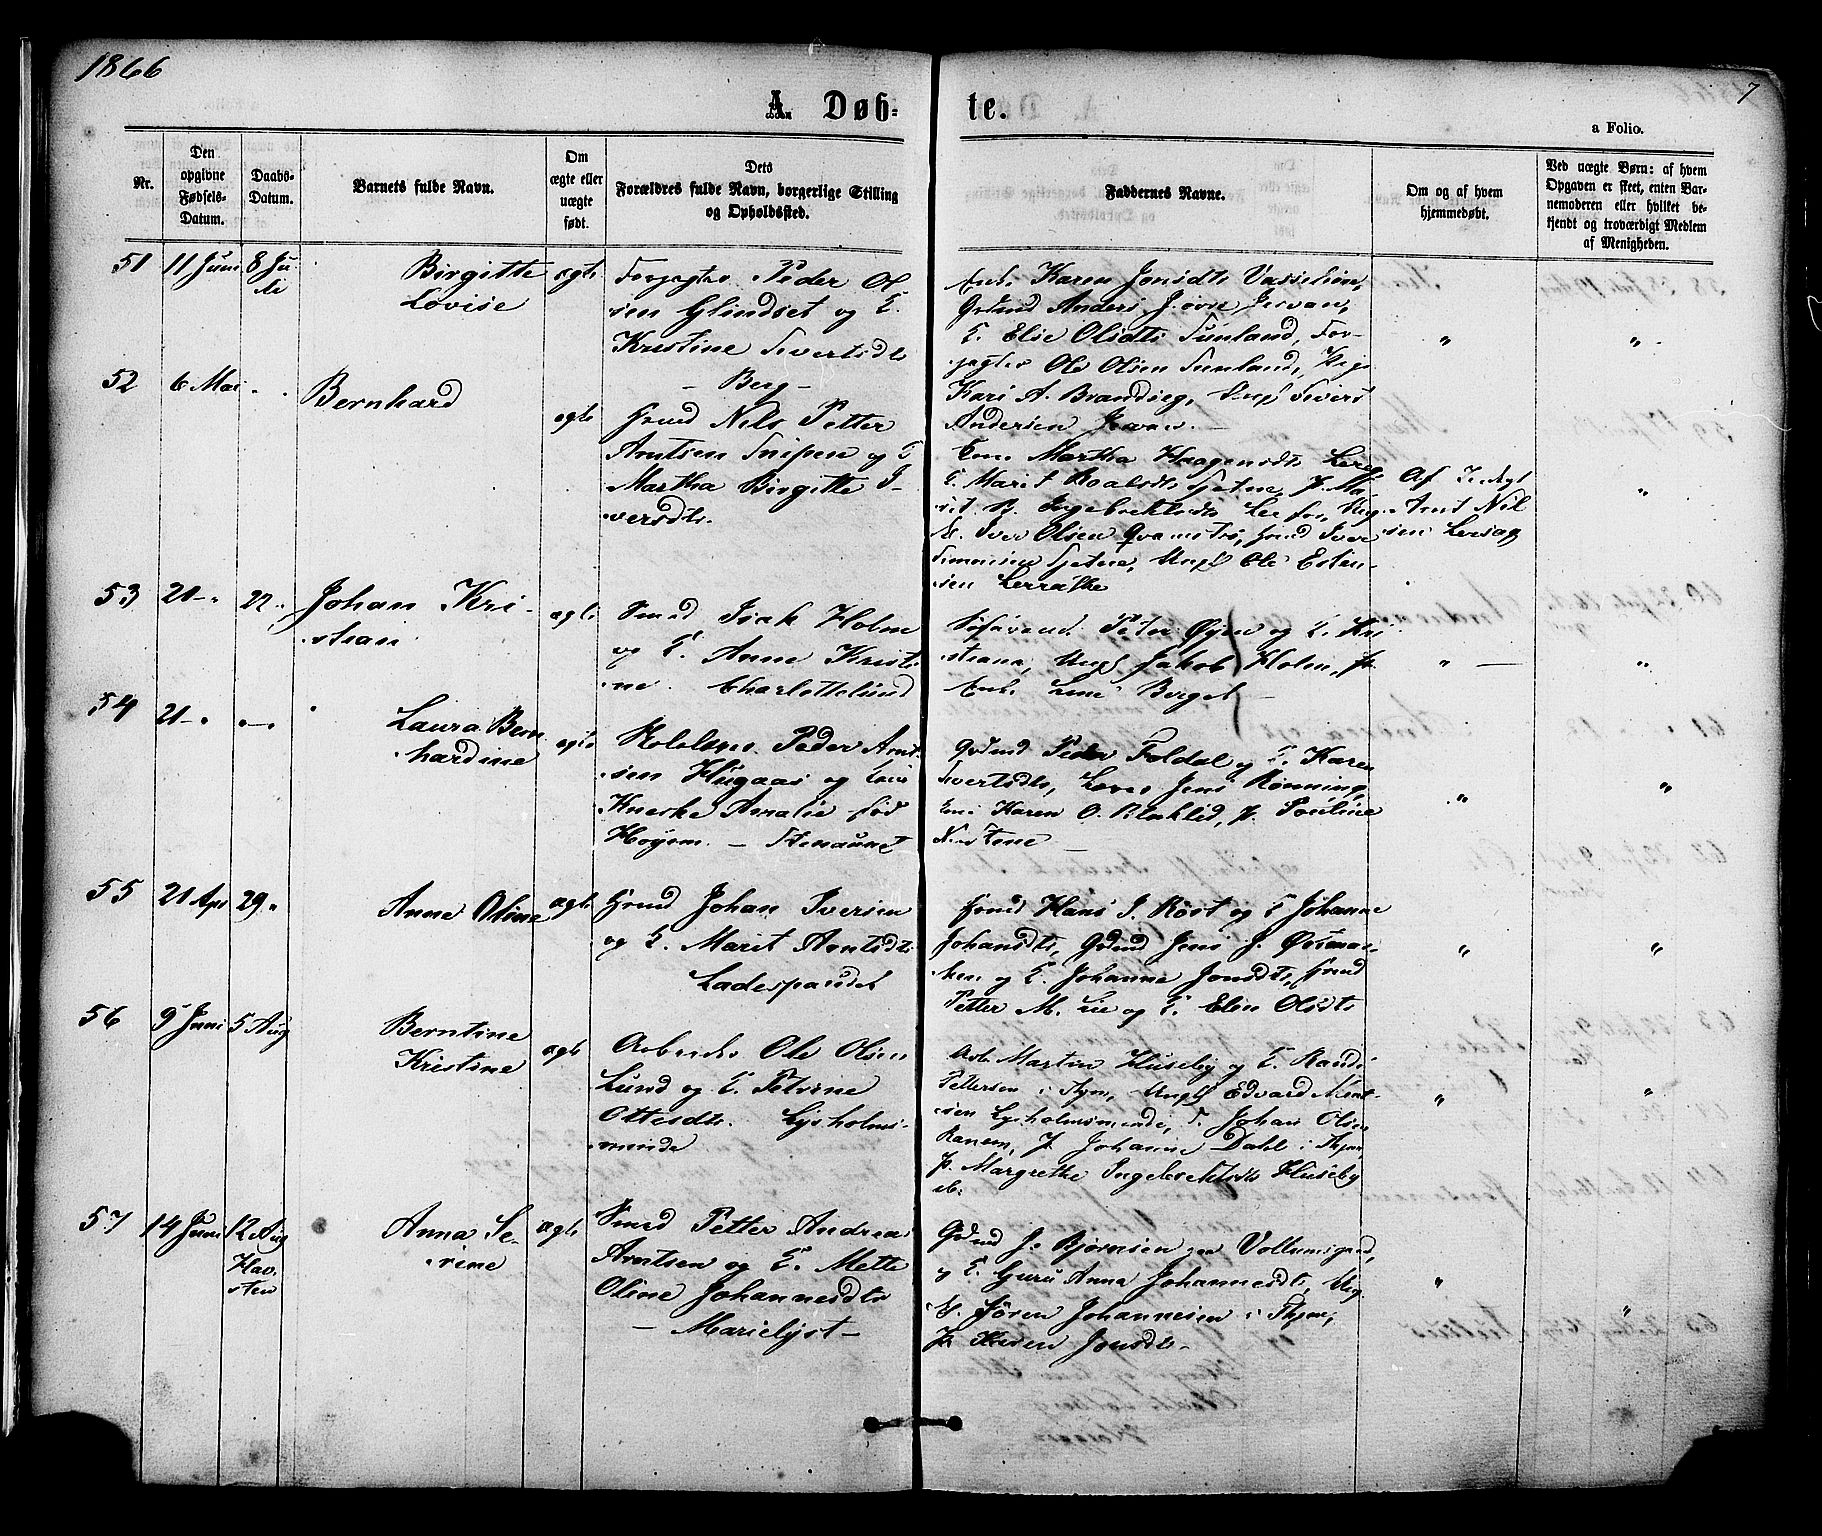 1866
7
A. Døb-
te.
a Folio.
Nr.
Den
opgivne
Fødsels-
Datum.
Daabs-
Datum.
Barnets fulde Navn.
Om
ægte eller
uægte
født.
Dets
Forældres fulde Navn, borgerlige Stilling
og Opholdssted.
Faddernes Navne.
Om og af hvem
hjemmedøbt.
Ved uægte Børn: af hvem
Opgaven er skeet, enten Bar-
nemoderen eller hvilket be-
kjendt og troværdigt Medlem
af Menigheden.
51
11 Juni
8 Ju-
li
Birgitte
Lovise
ægte
Peder Ol-
sen Glindset og E.
Kristine Sivertsdtr
- Berg -
Karen Jonsdtr
Anders
E. Elise Olsdtr Sunland, For-
Ole Olsen Sunland, Pige
Kari A. Brandseg, Sivert
Andersen
"
"
52
6 Mai
"
Bernhard
ægte
Grmd Nels Petter
Arntsen Snipen og E
Martha Birgitte I-
versdtr.
Martha Haagensdtr
E. Marit Roaldsdtr Tjetne, P. Ma-
rit Ingebrektsdtr
Iver Olsen Qvamstrø, Grmd Iver
Simonsen Tjetne, Ungk Ole Esten-
sen Lerrabke
Af
Arnt Nil-
sen
"
53
21 - "
22 "
Johan Kri-
stian
ægte
Smed Isak Holm
og E. Anne Kristi-
ne. Charlottelund
Peter Øyen og E. Kri-
stiana, Ungk Jakob Holm, P.
Enke Lene Berget -
" -
"
54
21 - "
" - "
Laura Bern-
hardine
ægte
Peder Arnt-
sen Hugaas og
Amalie fød
Høyem. - Stenaunet
Grdmd Peder Foldal og E. Karen
Sivertsdtr, Jens Rønning,
Karen O. P. Pauline
-
"
"
55
21 Apr
29 "
Anne Oline
ægte
Grmd Johan Iversen
og E. Marit Arntsdtr
Ladespandet
Grmd Hans J. Røst og E Johanne
Johansdtr, Grdmd Jens J.
og E. Johanne Jonsdtr, Grmd
Petter M. Lie og E. Elen Olsdtr
"
"
56
9 Juni
5 Aug
Berntine
Kristine
ægte
Arbeider Ole Olsen
Lund og E. Petrine
Ottesdtr. Lysholms-
minde
Arb. Martin Huseby og E. Randi
Pettersen i Thjm, Ungk Edvard
sen Lysholmsminde, T. Johan Olsen
Ranem, P. Johanne Dahl i Thjm,
P. Margrethe Ingebrektsdtr Huseby
"
"
57
14 Juni
12 Aug
Hav-
sten
Anna Se-
rine
ægte
Smed Petter Andreas
Arntsen og E. Mette
Oline Johannesdtr
- Marielyst -
Grdmd J. Bjørnsen
og E. Guru Anna Johannesdtr, Ung-
k. Søren Johannesen i Thjm,
P. Karen Jonsdtr -
"
"